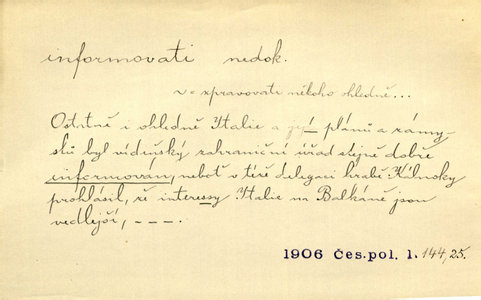 informovati nedok.
zpravovati někoho ohledně...
Ostatně i ohledně Italie a její plánů a zámy-
slů byl vídeňský zahraniční úřad stejně dobře
informován, neboť v téže delegaci hrabě Kálnoky
prohlásil, že interessy Italie na Balkáně jsou
vedlejší, ---.
1906 Čes. pol. 1. 144,25.